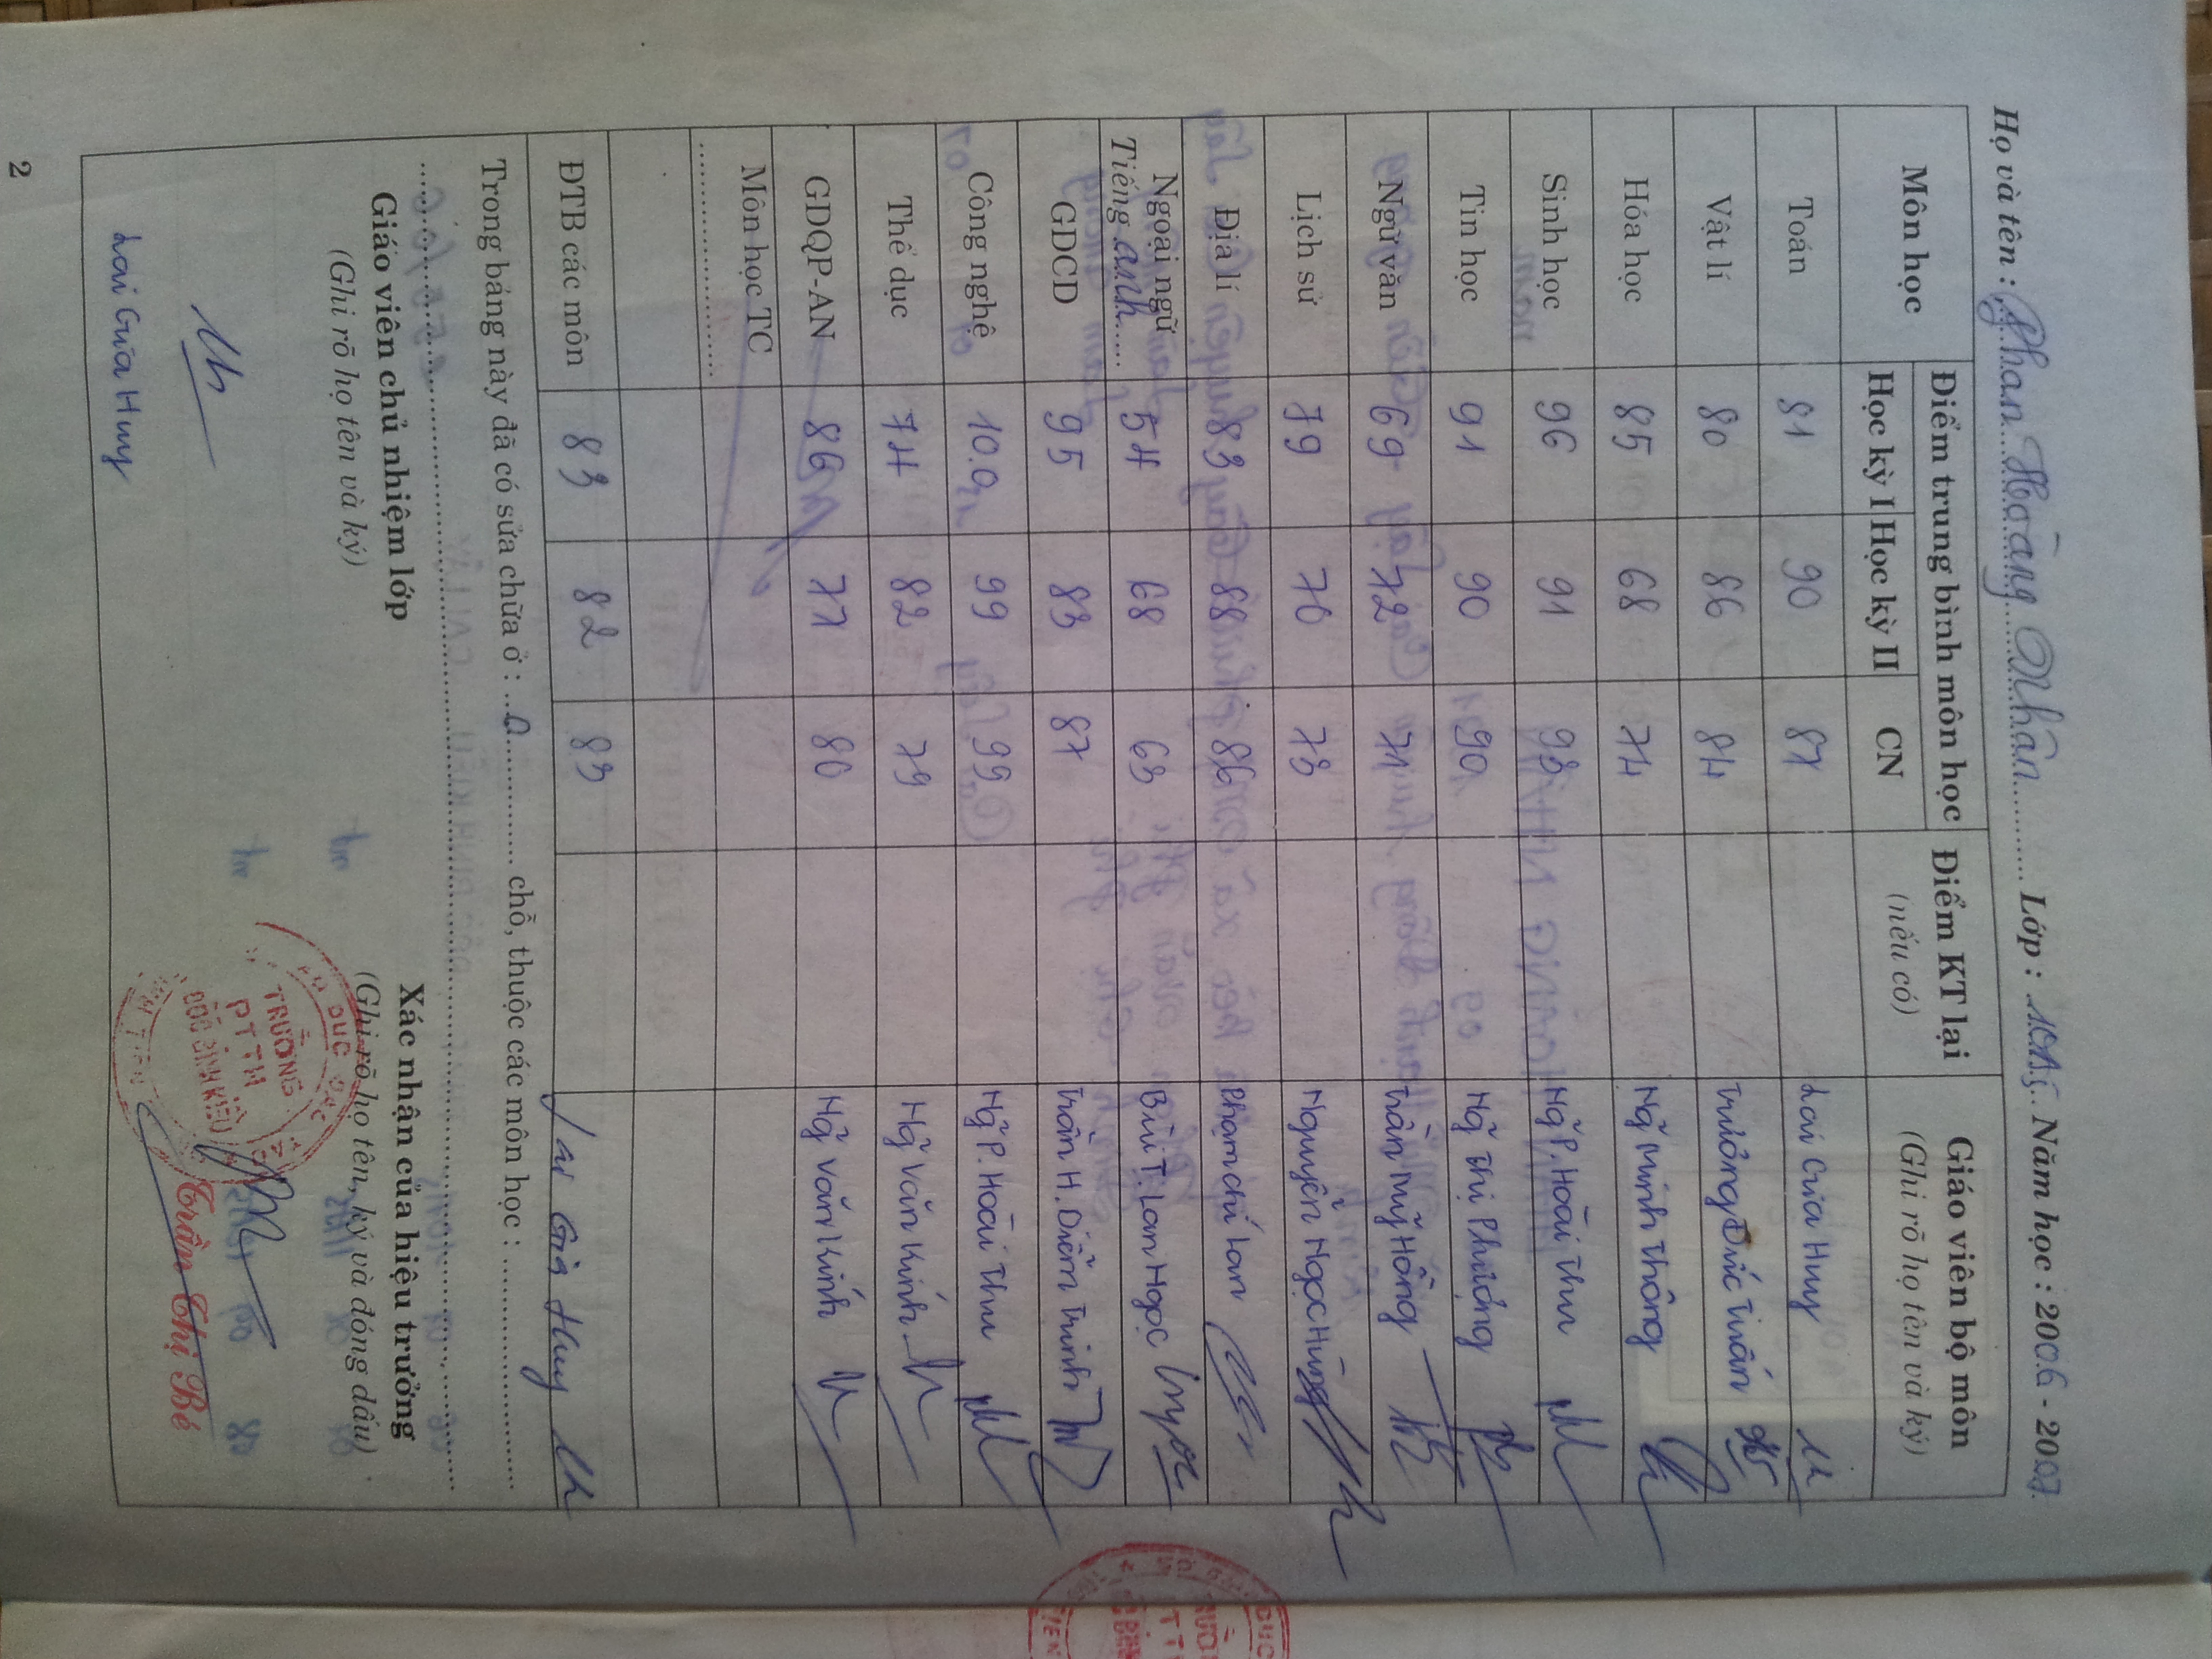 Họ và tên : Phan Hoàng Nhân Lớp : Năm học : 2006 - 2007
Môn học Điểm trung bình môn học Điểm KT lại (nếu có) Giáo viên bộ môn (Ghi rõ họ tên và ký)
Học kỳ I Học kỳ II CN
Toán 81 90 87 Lai Gia Huy
Vật lí 80 86 84 Trương Đức Tuấn
Hóa học 85 68 74 Ng̃ Minh Thông
Sinh học 96 91 93 Ng̃ P. Hoài Thu
Tin học 91 90 90 Ng̃ Thị Phượng
Ngữ văn 69 72 71 Trần Mỹ Hồng
Lịch sử 79 70 73 Nguyễn Ngọc Hùng
Địa lí 83 88 86 Phạm Chí Lan
Ngoại ngữ 54 68 63 Bùi T. Lan Ngọc
Tiếng anh
GDCD 95 83 87 Trần H. Diễm Trinh
Công nghệ 10.0 99 99 Ng̃ P. Hoài Thu
Thể dục 74 82 79 Ng̃ Văn Kính
GDQP-AN 86 77 80 Ng̃ Văn Kính
Môn học TC
ĐTB các môn 83 82 83 Lai Gia Huy
Trong bảng này đã có sửa chữa ở : 0 chỗ, thuộc các môn học :
Giáo viên chủ nhiệm lớp Xác nhận của hiệu trưởng
(Ghi rõ họ tên và ký) (Ghi rõ họ tên, ký và đóng dấu)
TRƯỜNG
PTTH
ĐỐC BINH KIỀU
Lai Gia Huy Trần Thị Bé
2